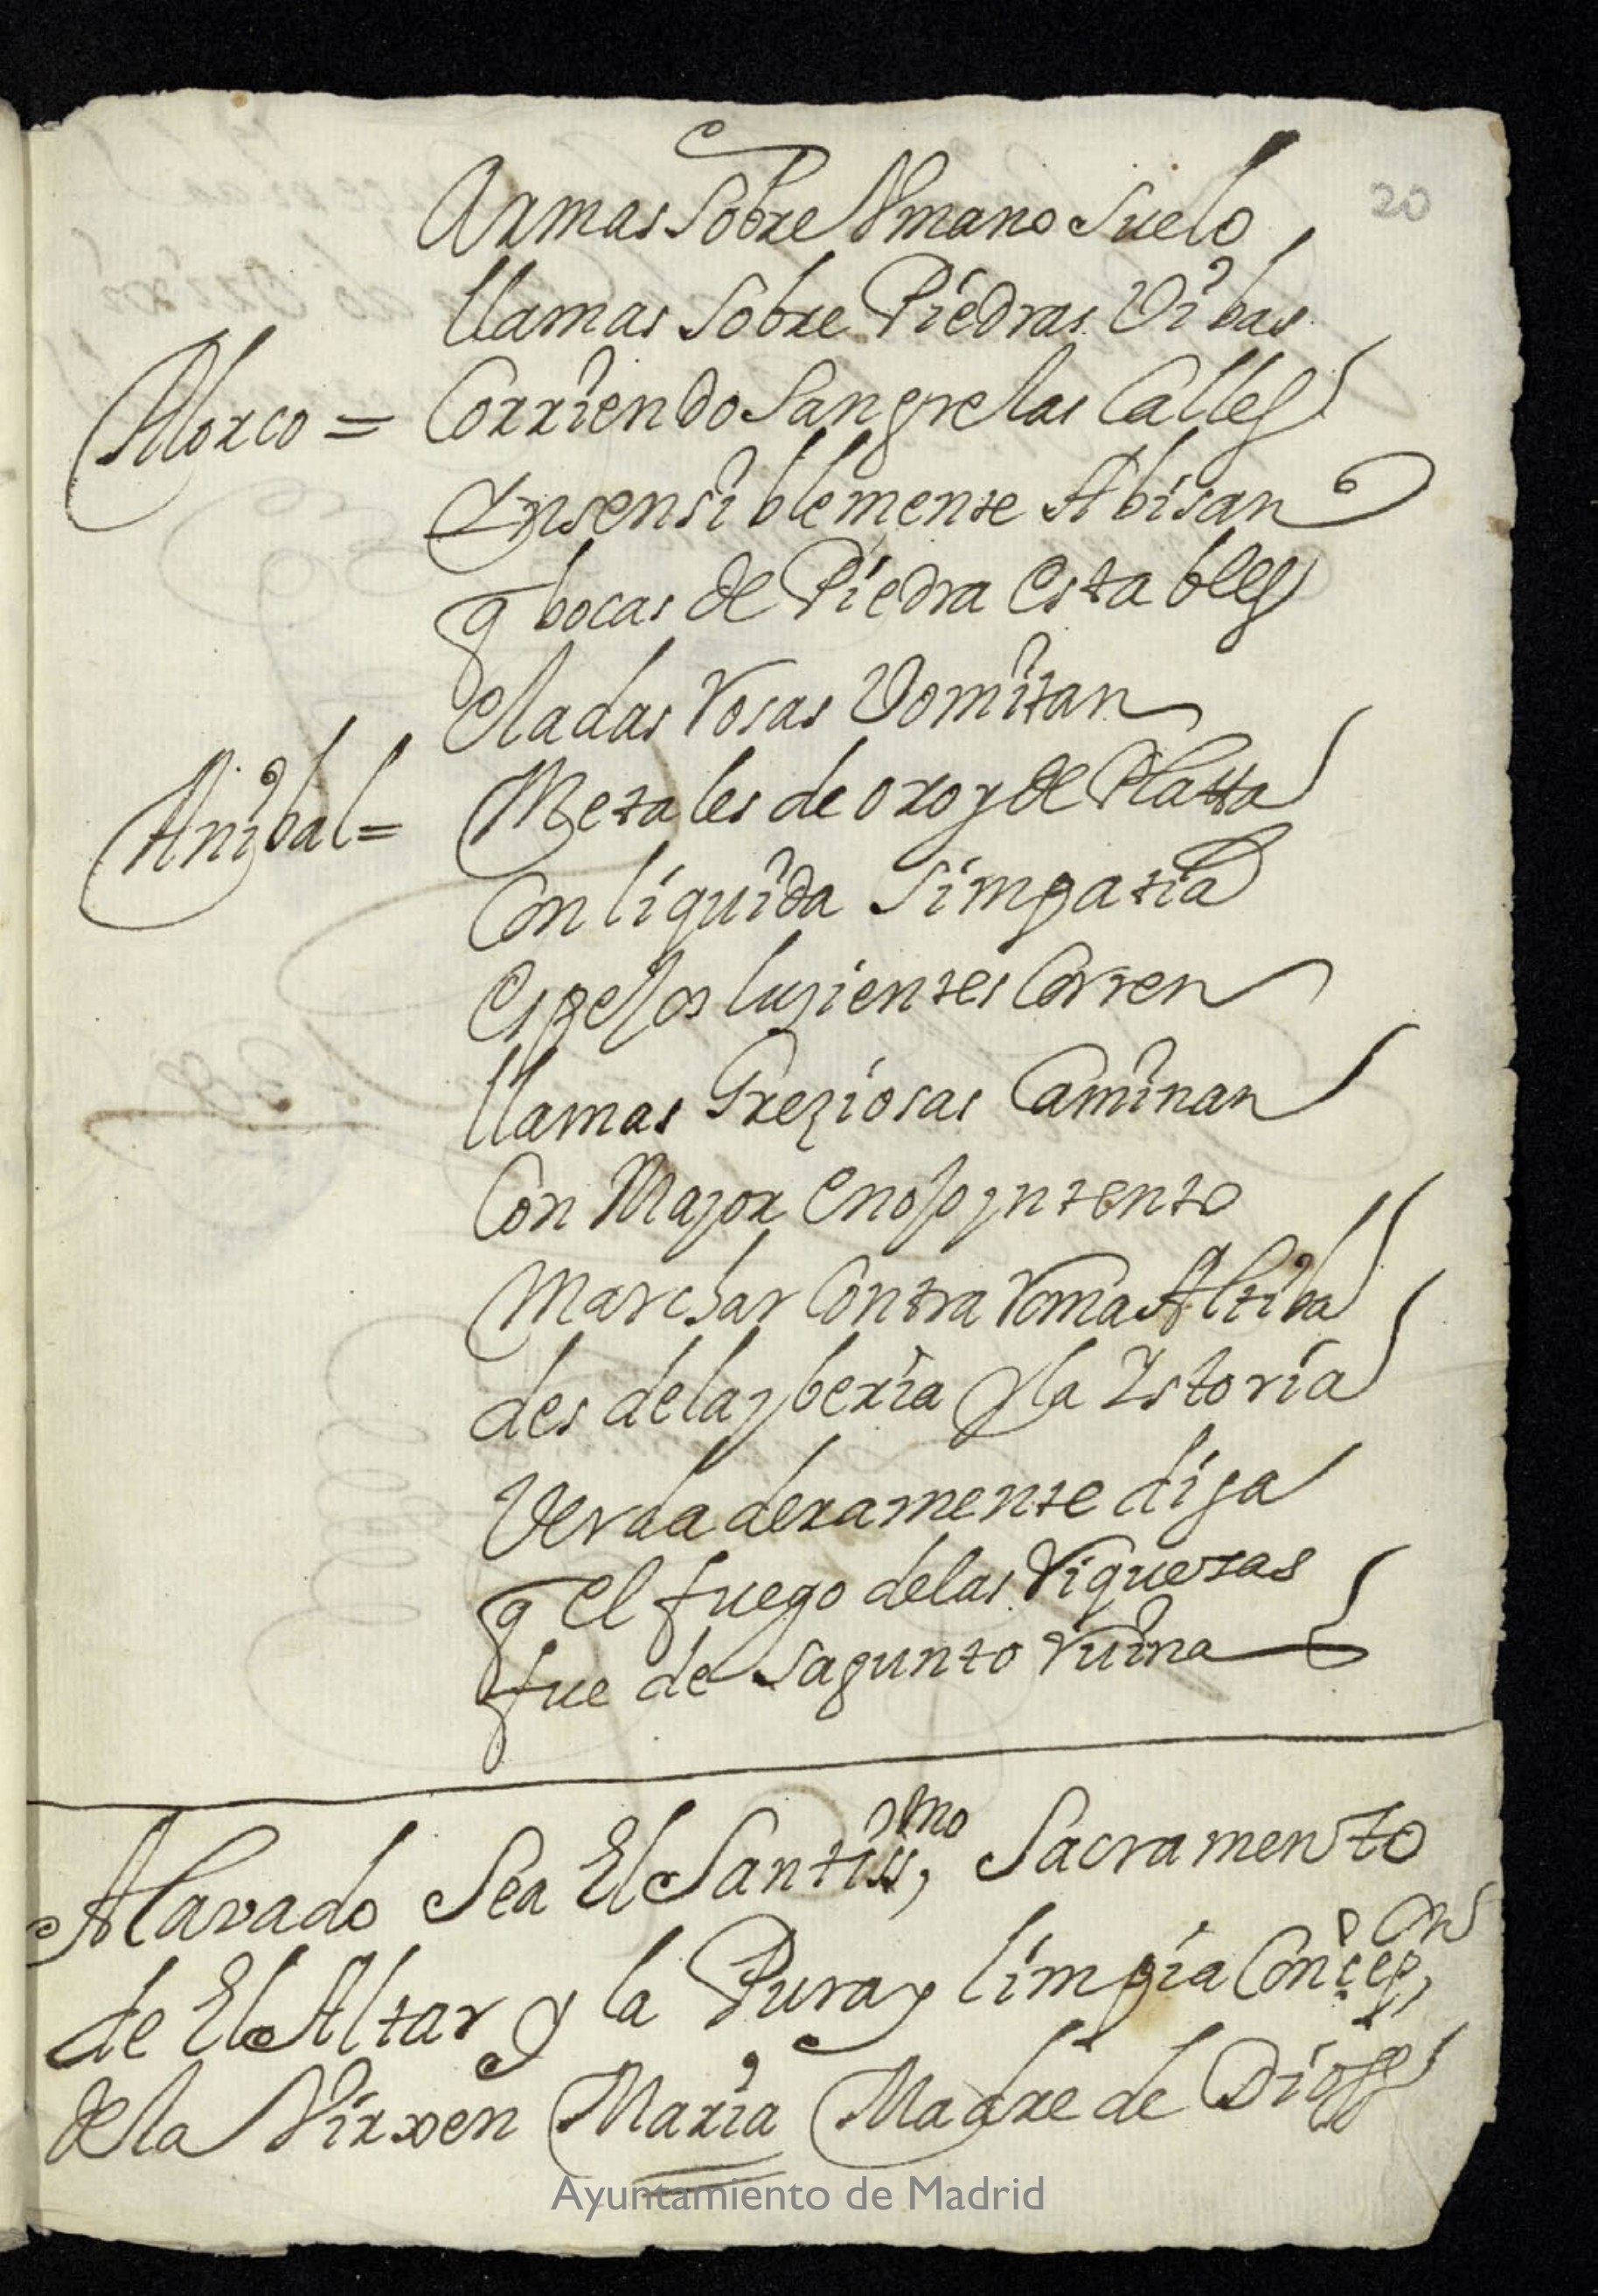 20
Armas sobre Vmano suelo
llamas sobre Piedras Vibas
Alorco = Corriendo Sangre las Calles
Ynsensiblemente Abisan
q bocas de Piedra estables
eladas rosas Vomitan
Anibal = Metales de oro y de Platta
Con liquida simpatia
espesos luzientes Corren
llamas Preziosas Caminan
Con Mayor enojo yntento
Marchar Contra roma Altiba
desde la yberia y la Istoria
Verdaderamente diga
q el fuego de las riquezas
fue de sagunto ruina
Alavado Sea El Santissmo, Sacramento
de El Altar y la Pura y limpia Concepon,
de la Virxen Maria Madre de Dios
Ayuntamiento de Madrid